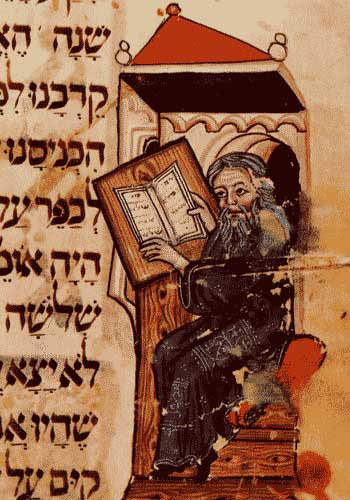 שָׁנָה הֵא
קֵרְבָנוּ לִפ
הִכְנִיסָנוּ
לְכַפֵּר עַל
הָיָה אוֹמֵ
שְׁלֹשָׁה
לֹא יָצָא
שֶׁהָיוּ
קַיָּם עַל